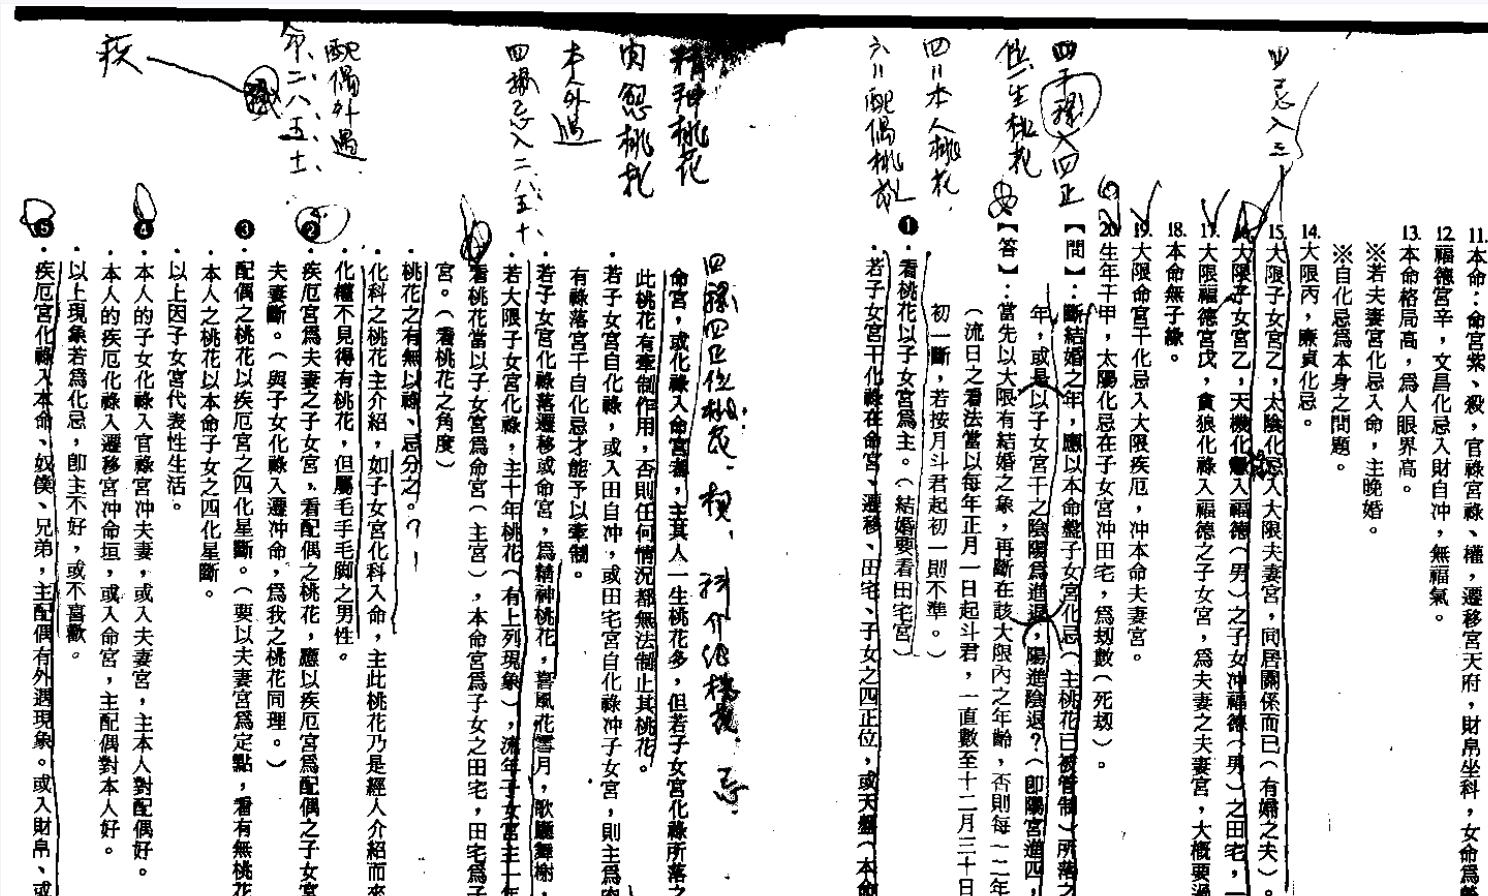 11.本命：命宮紫、殺，官祿宮祿、權，遷移宮天府，財帛坐科，女命爲
12.福德宮辛，文昌化忌入財自冲，無福氣。
13.本命格局高，爲人眼界高。
※若夫妻宮化忌入命，主晚婚。
※自化忌爲本身之問題。
14.大限丙，廉貞化忌。
15.大限子女宮乙，太陰化忌入大限夫妻宮，同居關係而已（有婦之夫）。
16.大限子女宮乙，天機化 入福德（男）之子女冲福德（男）之田宅，一
17.大限福德宮戊，貪狼化祿入福德之子女宮，爲夫妻之夫妻宮，大概要過
18.本命無子緣。
19.大限命宮干化忌入大限疾厄，冲本命夫妻宮。
20.生年干甲，太陽化忌在子女宮冲田宅，爲刼數（死刼）。
【問】：斷結婚之年，應以本命盤子女宮化忌（主桃花已被管制）所落之
年，或是以子女宮干之陰陽爲進退，陽進陰退？（卽陽宮進四，
【答】：當先以大限有結婚之象，再斷在該大限內之年齡，否則每一二年
（流日之看法當以每年正月一日起斗君，一直數至十二月三十日
初一斷，若按月斗君起初一則不準。）
❶．看桃花以子女宮爲主。（結婚要看田宅宮）
．若子女宮干化祿在命宮、遷移、田宅、子女之四正位，或天盤（本命
命宮，或化祿入命宮者，主其人一生桃花多，但若子女宮化祿所落之
此桃花有牽制作用，否則任何情況都無法制止其桃花。
．若子女宮自化祿，或入田自冲，或田宅宮自化祿冲子女宮，則主爲肉
有祿落宮干自化忌才能予以牽制。
．若子女宮化祿落遷移或命宮，爲精神桃花，喜風花雪月，歌廳舞榭，
．若大限子女宮化祿，主十年桃花（有上列現象），流年子女宮主一年
．看桃花當以子女宮爲命宮（主宮），本命宮爲子女之田宅，田宅爲子
宮。（看桃花之角度）
桃花之有無以祿、忌分之。？
．化科之桃花主介紹，如子女宮化科入命，主此桃花乃是經人介紹而來
化權不見得有桃花，但屬毛手毛脚之男性。
❷．疾厄宮爲夫妻之子女宮，看配偶之桃花，應以疾厄宮爲配偶之子女宮
夫妻斷。（與子女化祿入遷冲命，爲我之桃花同理。）
❸．配偶之桃花以疾厄宮之四化星斷。（要以夫妻宮爲定點，看有無桃花
．本人之桃花以本命子女之四化星斷。
．以上因子女宮代表性生活。
❹．本人的子女化祿入官祿宮冲夫妻，或入夫妻宮，主本人對配偶好。
．本人的疾厄化祿入遷移宮冲命垣，或入命宮，主配偶對本人好。
．以上現象若爲化忌，卽主不好，或不喜歡。
❺．疾厄宮化祿入本命、奴僕、兄弟，主配偶有外遇現象。或入財帛、或
四忌入三
四干祿入四正
位一生桃花
四〃本人桃花
六〃配偶桃花
精神桃花
肉慾桃花
本人外遇
四祿忌入二、八、五、十
配偶外遇
命、二、八、五、十、
疾
四祿四正位桃花．權．科介紹桃花．忌